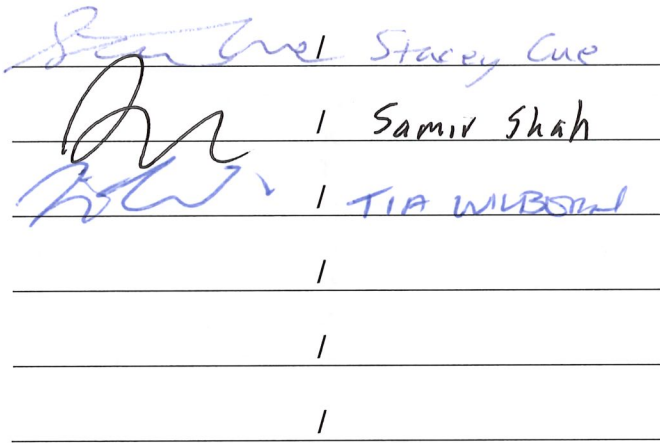 / Stacey Cue
/ Samir Shah
/ TIA WILBORN
/
/
/